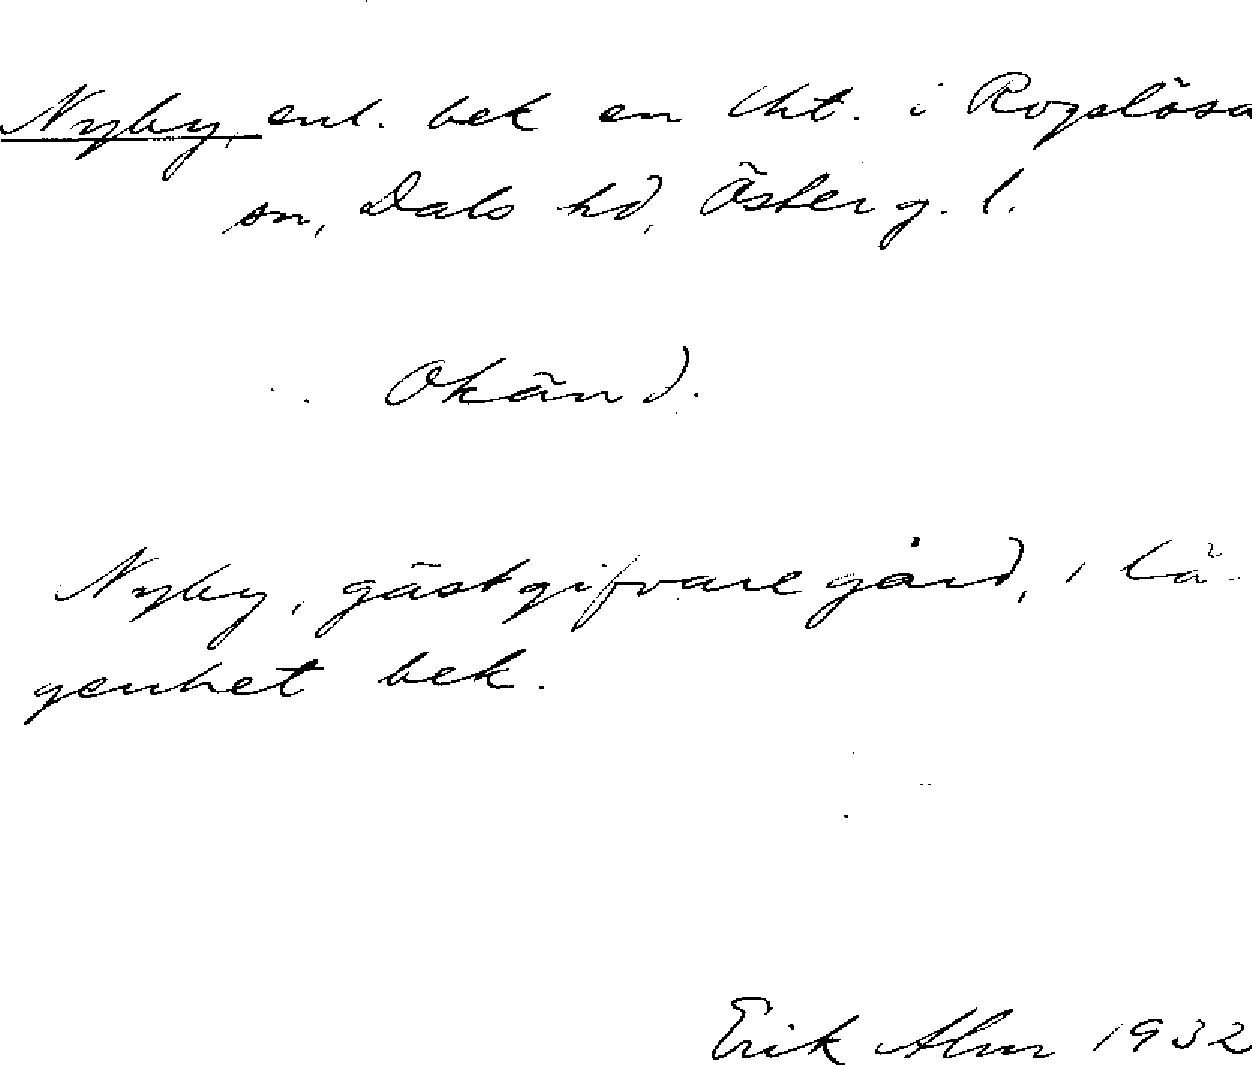 Nyby, enl. bek en lht. i Rogslösa
sn, Dals hd, Österg. l.
Okänd.
Nyby, gästgifvaregård, 1 lä-
genhet bek.
Erik Alm 1932